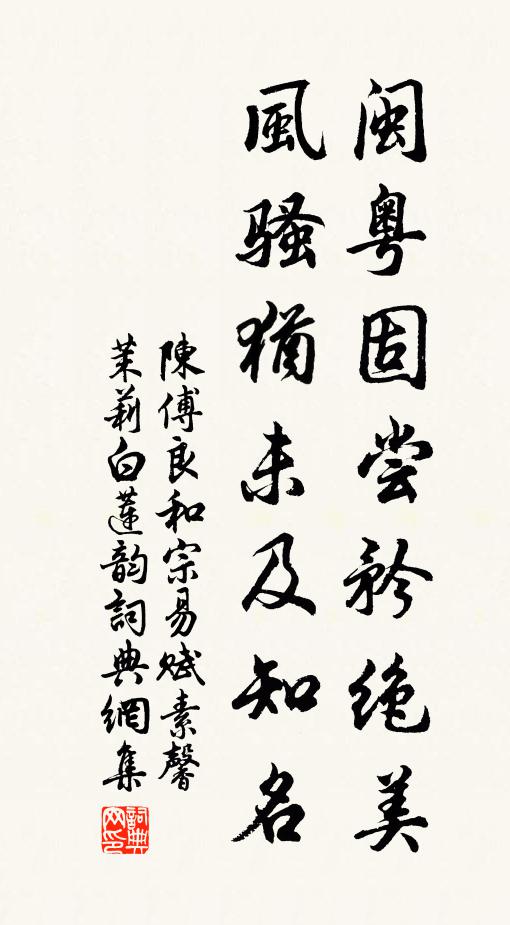 闽粤固尝矜绝美
風騷猶未及知名
陳傅良和宗易赋素馨
茉莉白蓮韵詞典網集
詞典网印